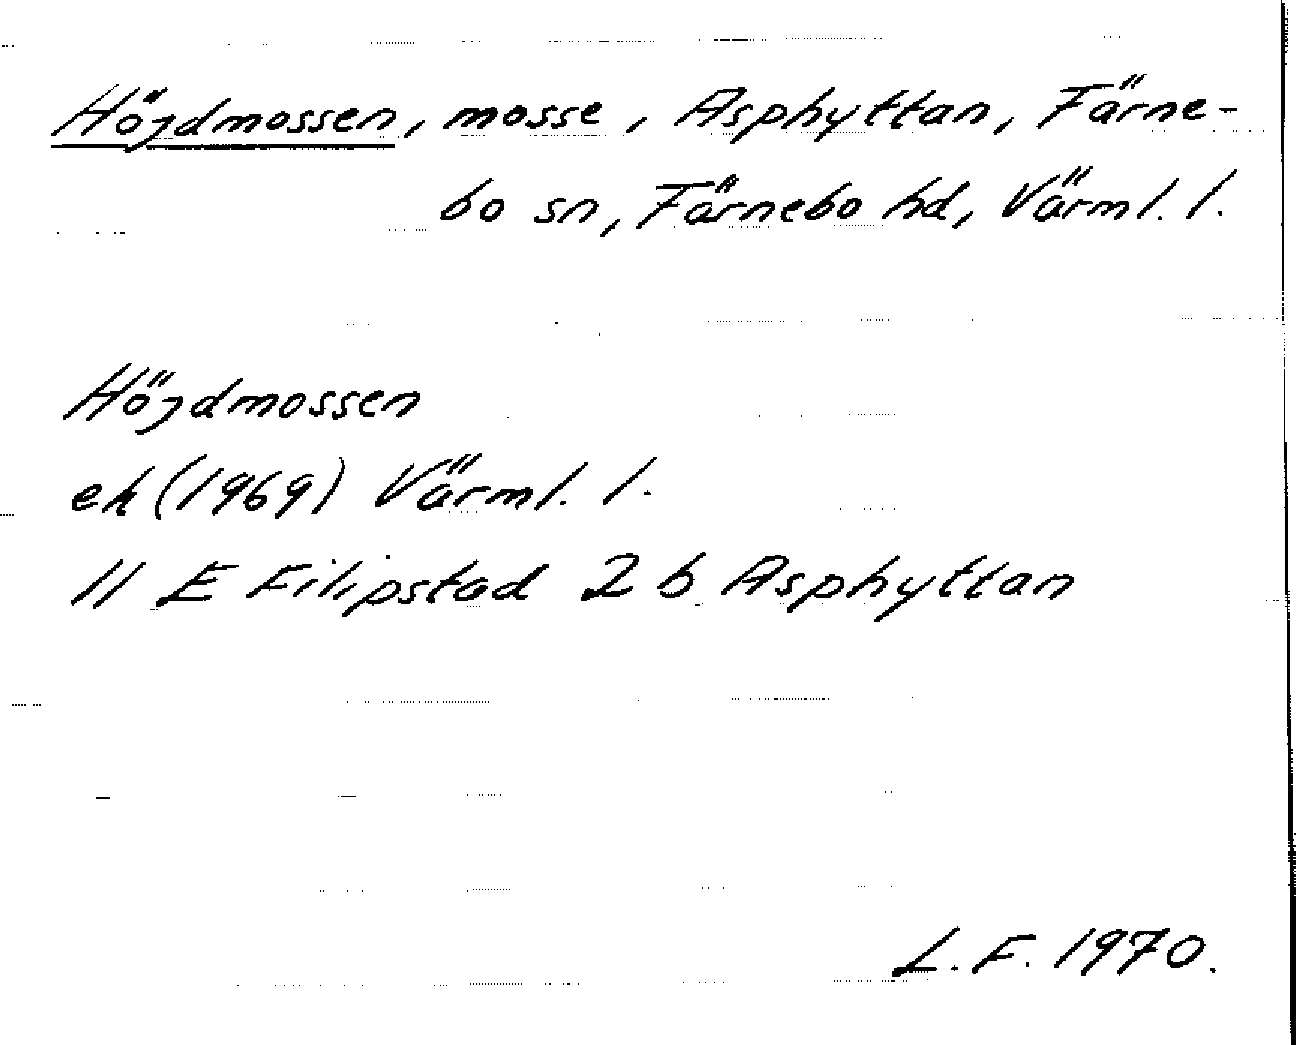 Höjdmossen, mosse, Asphyttan, Färne-
bo sn, Färnebo hd, Värml. l.
Höjdmossen
ek (1969) Värml. l.
11 E Filipstad 2 b Asphyttan
L. F. 1970.